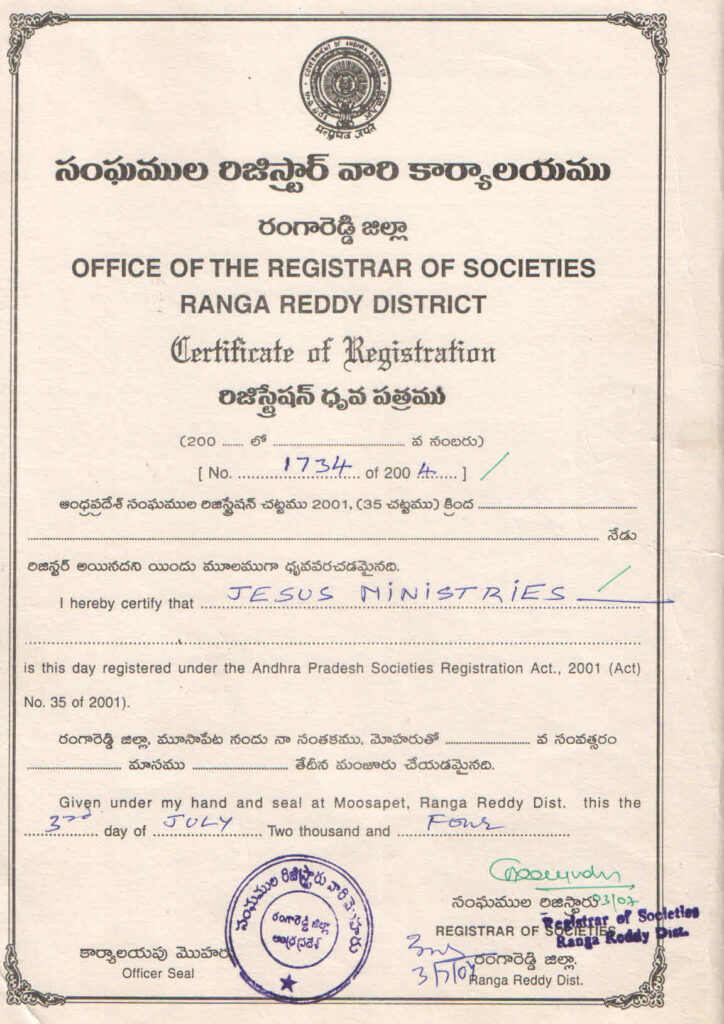 GOVERNMENT OF ANDHRA PRADESH
सत्यमेव जयते
సంఘముల రిజిస్ట్రార్ వారి కార్యాలయము
రంగారెడ్డి జిల్లా
OFFICE OF THE REGISTRAR OF SOCIETIES
RANGA REDDY DISTRICT
Certificate of Registration
రిజిస్ట్రేషన్ ధృవ పత్రము
(200 ...... లో .................................. వ నంబరు)
[ No. 1734 of 200 4 ]
ఆంధ్రప్రదేశ్ సంఘముల రిజిస్ట్రేషన్ చట్టము 2001, (35 చట్టము) క్రింద ........................................
.................................................................................... నేడు
రిజిస్టర్ అయినదని యిందు మూలముగా ధృవపరచడమైనది.
I hereby certify that JESUS MINISTRIES
is this day registered under the Andhra Pradesh Societies Registration Act., 2001 (Act)
No. 35 of 2001).
రంగారెడ్డి జిల్లా, మూసాపేట నందు నా సంతకము, మోహరుతో ...................... వ సంవత్సరం
........................ మాసము ........................ తేదీన మంజూరు చేయడమైనది.
Given under my hand and seal at Moosapet, Ranga Reddy Dist. this the
3rd day of JULY Two thousand and Four
సంఘముల రిజిస్ట్రారు వారి మొహరు
రంగారెడ్డి జిల్లా
ఆంధ్రప్రదేశ్
సంఘముల రిజిస్ట్రారు
Registrar of Societies
REGISTRAR OF SOCIETIES
Ranga Reddy Dist.
కార్యాలయపు మొహరు
రంగారెడ్డి జిల్లా.
Officer Seal
3/7/04
Ranga Reddy Dist.